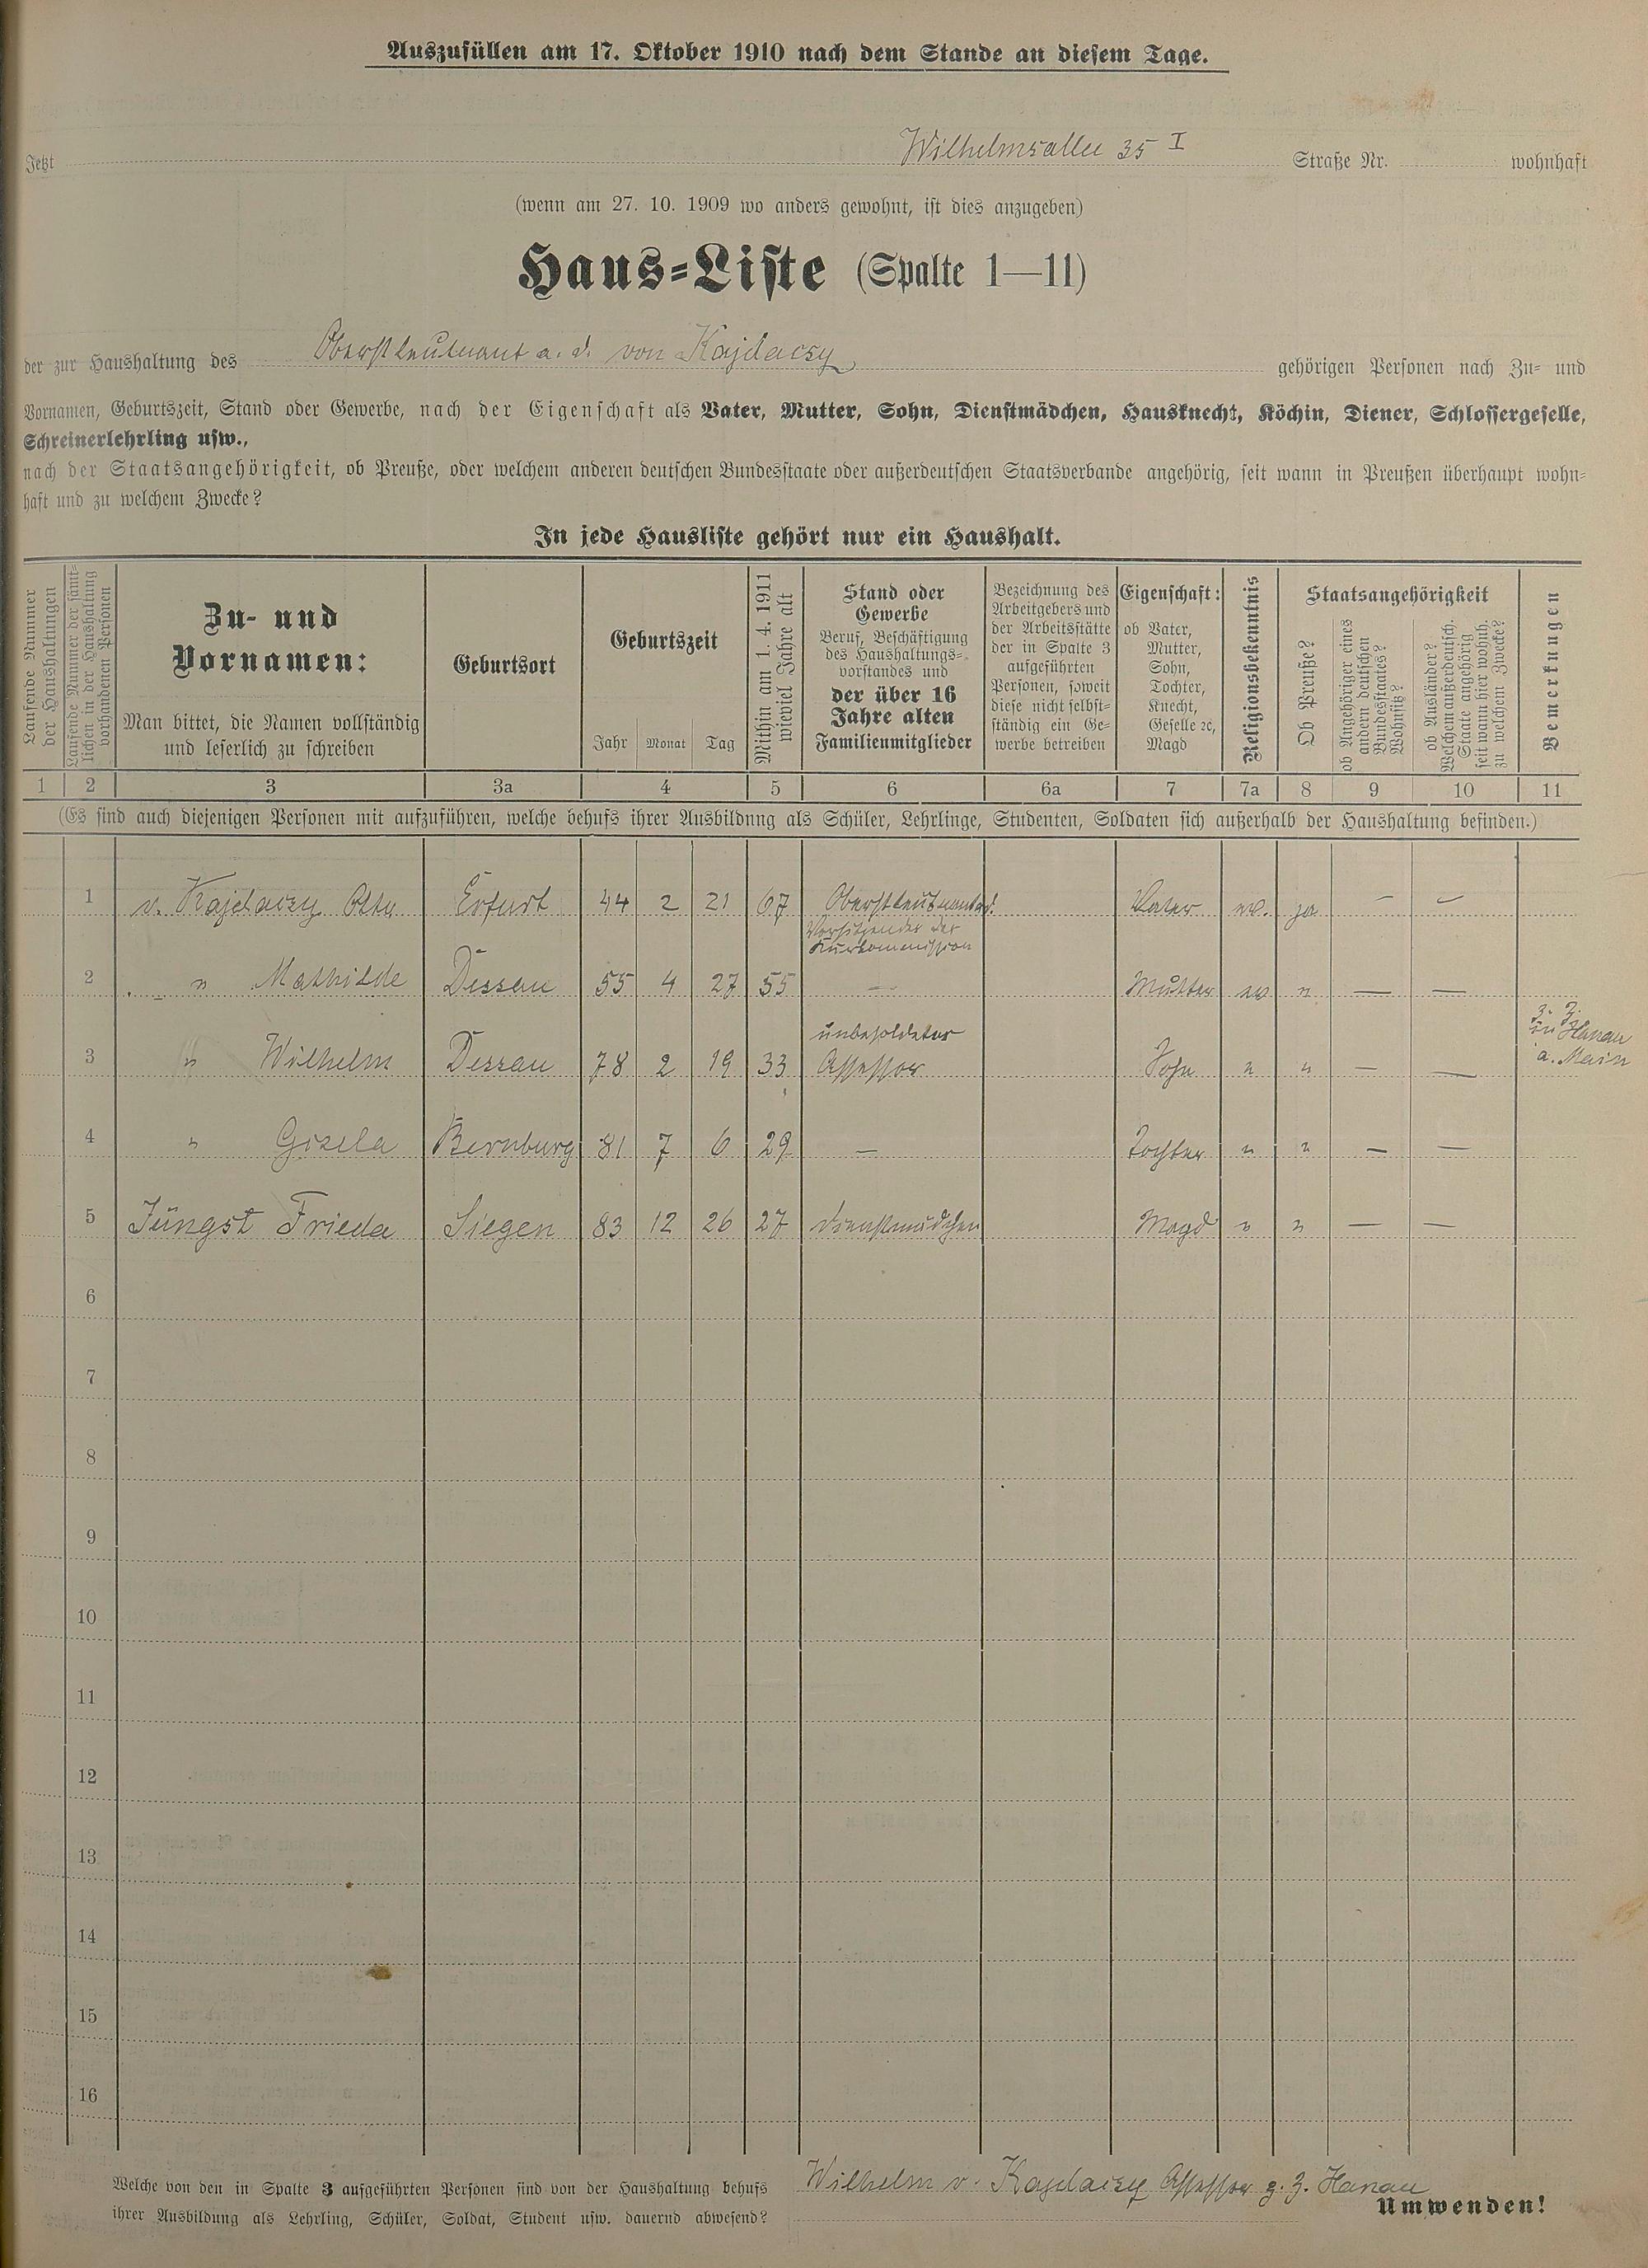 Auszufüllen am 17. Oktober 1910 nach dem Stande an diesem Tage.
Jetzt Wilhelmsallee 35 I Straße Nr. wohnhaft
(wenn am 27. 10. 1909 wo anders gewohnt, ist dies anzugeben)
Haus-Liste (Spalte 1—11)
der zur Haushaltung des Oberstleutnant a. d. von Kajdacsy gehörigen Personen nach Zu- und
Vornamen, Geburtszeit, Stand oder Gewerbe, nach der Eigenschaft als Vater, Mutter, Sohn, Dienstmädchen, Hausknecht, Köchin, Diener, Schlossergeselle,
Schreinerlehrling usw.,
nach der Staatsangehörigkeit, ob Preuße, oder welchem anderen deutschen Bundesstaate oder außerdeutschen Staatsverbande angehörig, seit wann in Preußen überhaupt wohn-
haft und zu welchem Zwecke?
In jede Hausliste gehört nur ein Haushalt.
Laufende Nummer
der Haushaltungen
Laufende Nummer der sämt-
lichen in der Haushaltung
vorhandenen Personen
Zu- und
Vornamen:
Man bittet, die Namen vollständig
und leserlich zu schreiben
Geburtsort
Geburtszeit
Jahr Monat Tag
Mithin am 1. 4. 1911
wieviel Jahre alt
Stand oder
Gewerbe
Beruf, Beschäftigung
des Haushaltungs-
vorstandes und
der über 16
Jahre alten
Familienmitglieder
Bezeichnung des
Arbeitgebers und
der Arbeitsstätte
der in Spalte 3
aufgeführten
Personen, soweit
diese nicht selbst-
ständig ein Ge-
werbe betreiben
Eigenschaft:
ob Vater,
Mutter,
Sohn,
Tochter,
Knecht,
Geselle ec,
Magd
Religionsbekenntnis
Staatsangehörigkeit
Ob Preuße?
ob Angehöriger eines
andern deutschen
Bundesstaates?
Wohnsitz?
ob Ausländer?
Welchem außerdeutsch.
Staate angehörig
seit wann hier wohnh.
zu welchem Zwecke?
Bemerkungen
1 2 3 3a 4 5 6 6a 7 7a 8 9 10 11
(Es sind auch diejenigen Personen mit aufzuführen, welche behufs ihrer Ausbildung als Schüler, Lehrlinge, Studenten, Soldaten sich außerhalb der Haushaltung befinden.)
1 v. Kajdacsy Otto Erfurt 44 2 21 67 Oberstleutnant a.d. Vater ev. ja — —
Vorsitzender der
Kurkommission
2 " Mathilde Dessau 55 4 27 55 — Mutter ev " — —
3 " Wilhelm Dessau 78 2 19 33 unbesoldeter
Assessor Sohn " " — — z. Z.
in Hanau
a. Main
4 " Gisela Bernburg 81 7 6 29 — Tochter " " — —
5 Jüngst Frieda Siegen 83 12 26 27 Dienstmädchen Magd " " — —
6
7
8
9
10
11
12
13
14
15
16
Welche von den in Spalte 3 aufgeführten Personen sind von der Haushaltung behufs
ihrer Ausbildung als Lehrling, Schüler, Soldat, Student usw. dauernd abwesend?
Wilhelm v. Kajdacsy Assessor z. Z. Hanau
Umwenden!